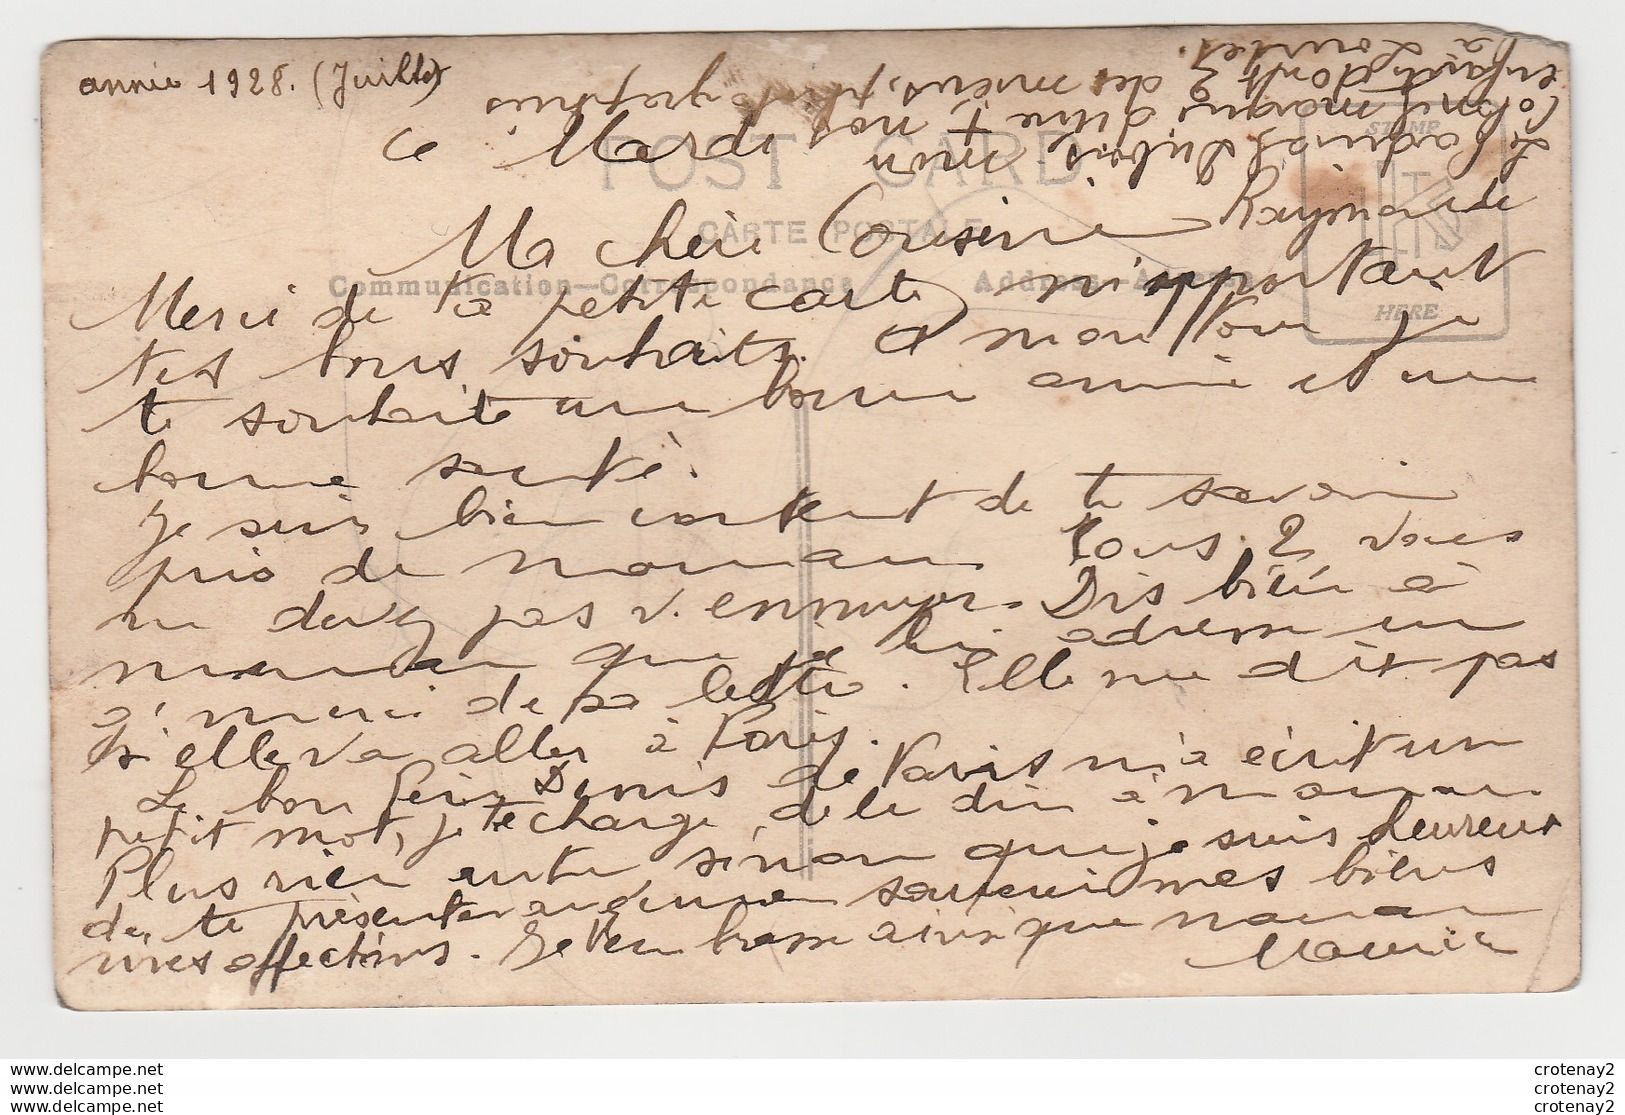 année 1928. (Juillet)
Le Colonel marqué d'une + nos
enfants dont 2 des miens, photographiés
à Lourdes.
POST CARD
CARTE POSTALE
Communication—Correspondance
Address—Adresse
STAMP
HERE
ce Mardi
Ma chère Cousine Raymonde
Merci de ta petite carte m'apportant
tes bons souhaits. A mon tour je
te souhaite une bonne année et une
bonne santé.
Je suis bien content de te savoir
près de maman. Tous 2 vous
ne devez pas v. ennuyer. Dis bien à
maman que je lui adresse un
merci de sa lettre. Elle ne dit pas
si elle va aller à Paris.
Le bon Père Denis de Paris m'a écrit un
petit mot, je te charge de le dire à maman
Plus rien autre sinon que je suis heureux
de te présenter souvenir mes biens
vives affections. Je t'embrasse ainsi que maman
Maurice
crotenay2
www.delcampe.net
crotenay2
www.delcampe.net
crotenay2
www.delcampe.net